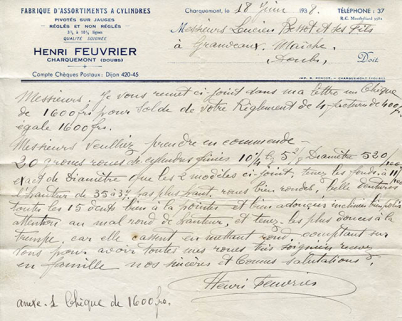 FABRIQUE D'ASSORTIMENTS A CYLINDRES
PIVOTÉS SUR JAUGES
RÉGLÉS ET NON RÉGLÉS
QUALITÉ SOIGNÉE
HENRI FEUVRIER
CHARQUEMONT (DOUBS)
Compte Chèques Postaux: Dijon 420-45
Charquemont, le 18 Juin 1938.
TÉLÉPHONE : 37
Messieurs Lucien et ses Fils
à Maîche
Doubs
Doit
Messieurs, Je vous remet ci-joint dans ma lettre un chèque
de 1600 frs pour solde de votre Règlement de 4 facture de 400 frs
égale 1600 frs.
Messieurs veuillez prendre en commende -
20 grosses roues de cylindre finies 10½ Diamètre 520/100
de diamètre que les 2 modèles ci-joint,
hauteur de 35 à 37 pas plus haut, roues bien rondes, belle denture
toutes les 15 dents bien à la pointe et bien
attention au mal rond de hauteur, et tenez-les plus douces à la
trempe, car elle cassent en mettant rond, comptant sur
vous pour avoir toutes mes roues très soignées
en famille nos sincères et Salutations.
Henri Feuvrier
annexe - 1 Chèque de 1600 frs.